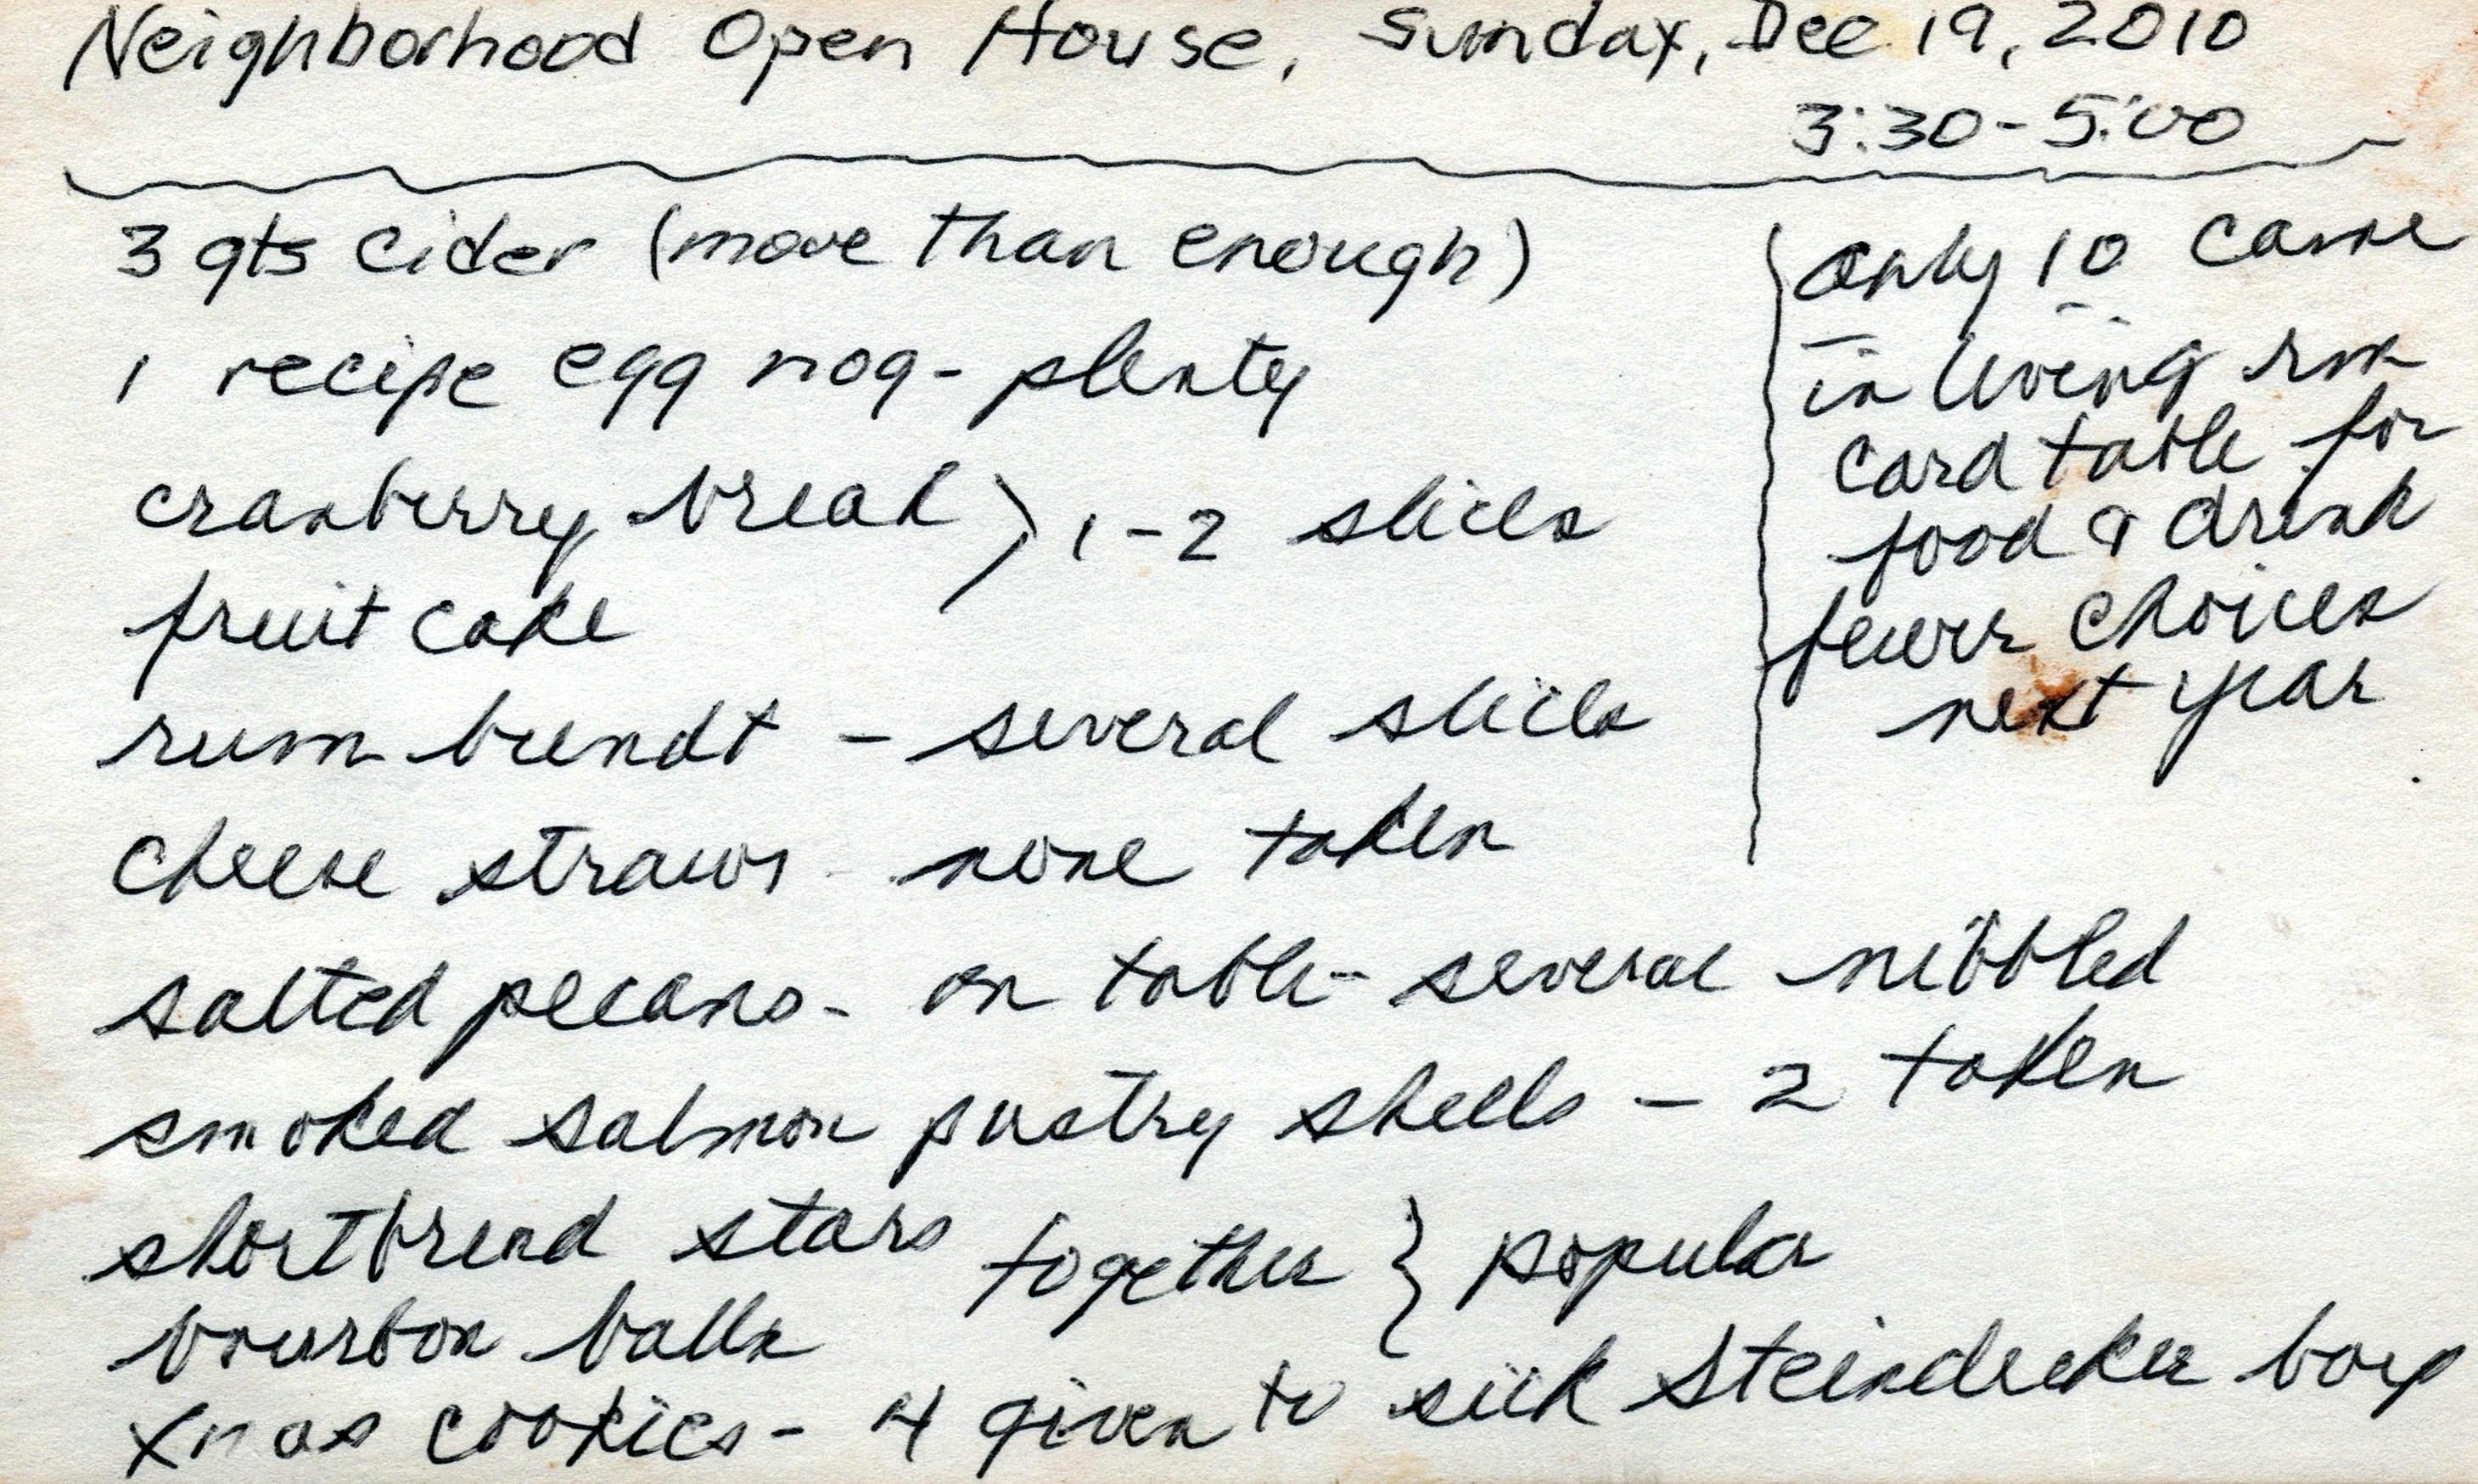 Neighborhood Open House, Sunday, Dec 19, 2010
3:30-5:00
3 qts cider (more than enough)
1 recipe egg nog - plenty
cranberry bread } 1-2 slices
fruit cake
rum bundt - several slices
cheese straws - none taken
salted pecans - on table - several nibbled
smoked salmon pastry shells - 2 taken
shortbread stars together } popular
bourbon balls
xmas cookies - 4 given to sick Steindecker boy
only 10 came
in living rm
card table for
food & drink
fewer choices
next year